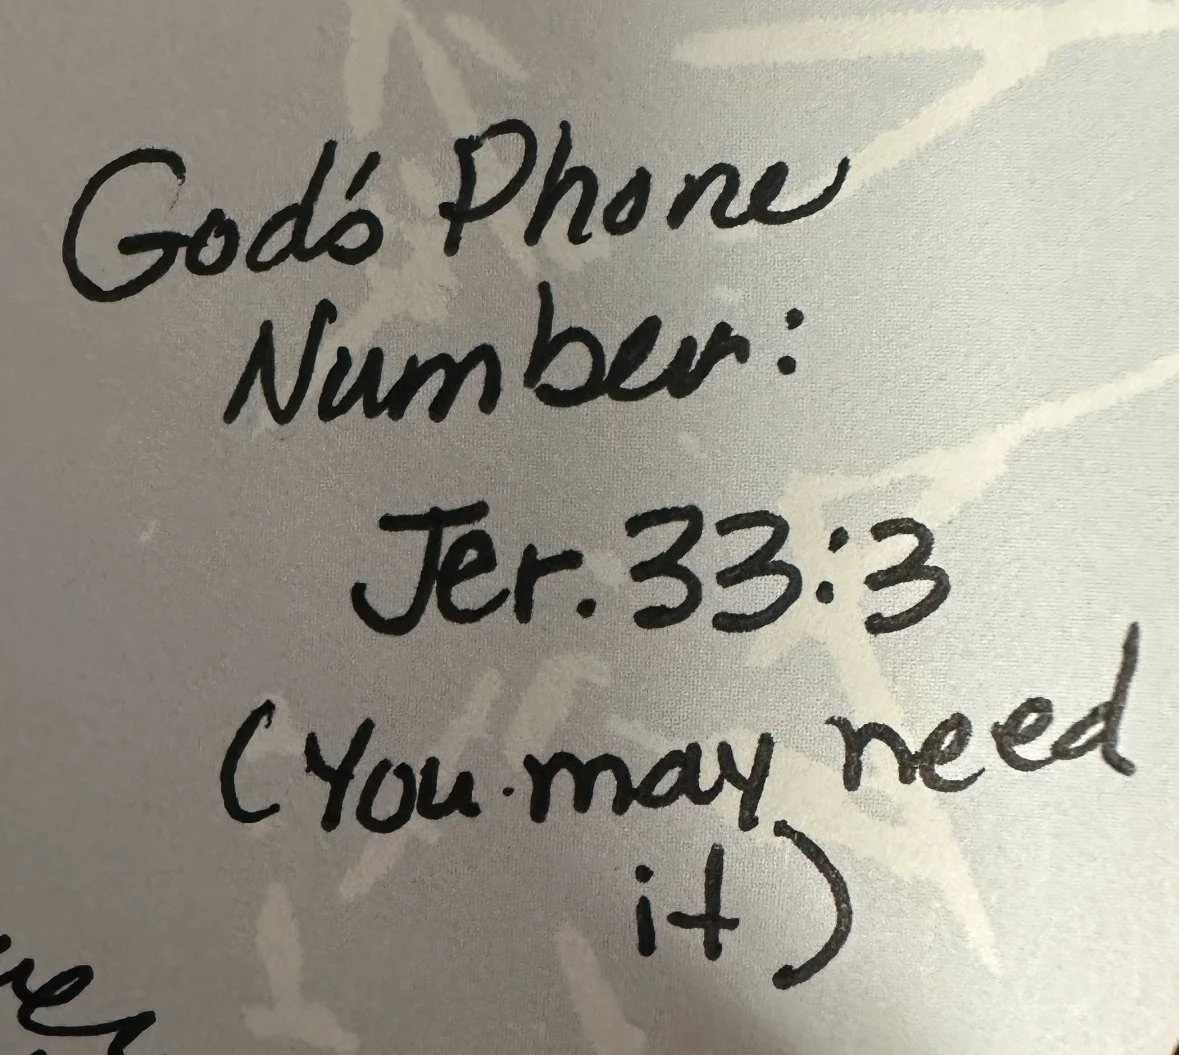 God's Phone
Number:
Jer. 33:3
(You may need
it)